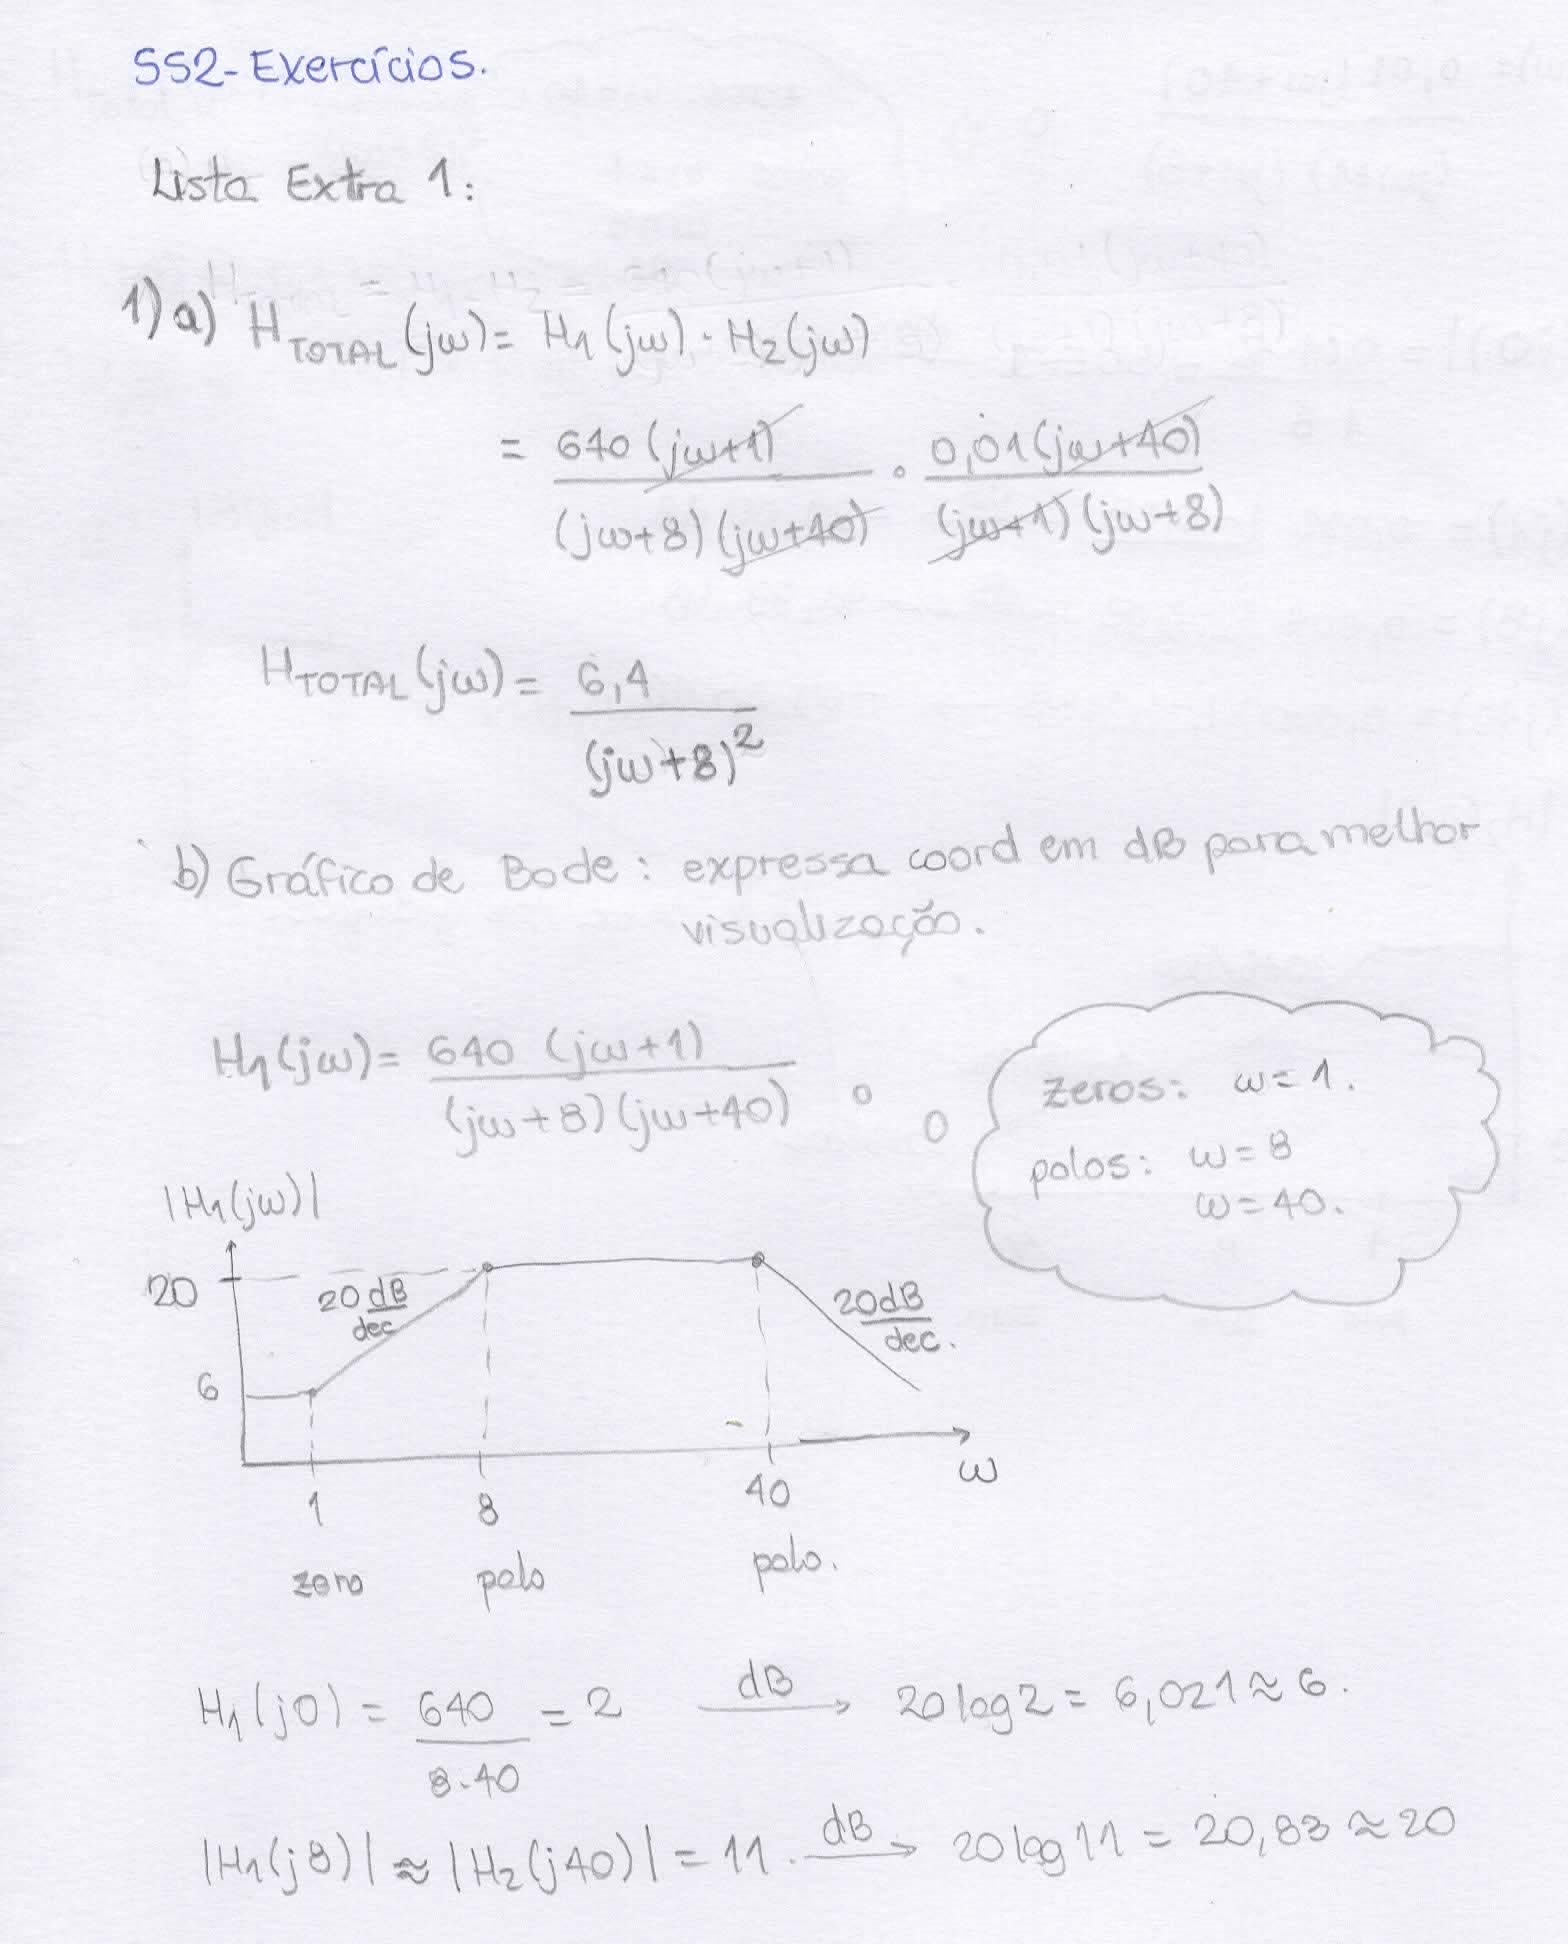 SS2-Exercícios.
Lista Extra 1:
1) a) H_TOTAL(jω) = H₁(jω) · H₂(jω)
= 640 (jω+1) / (jω+8)(jω+40) · 0,01(jω+40) / (jω+1)(jω+8)
H_TOTAL(jω) = 6,4 / (jω+8)²
b) Gráfico de Bode: expressa coord em dB para melhor
visualização.
H₁(jω) = 640 (jω+1) / (jω+8)(jω+40)
zeros: ω=1.
polos: ω=8
ω=40.
|H₁(jω)|
20
20 dB/dec
20dB/dec.
6
ω
1
8
40
zero
polo
polo.
H₁(j0) = 640 / 8.40 = 2 dB→ 20log2 = 6,021 ≈ 6.
|H₁(j8)| ≈ |H₂(j40)| = 11. dB→ 20log11 = 20,83 ≈ 20